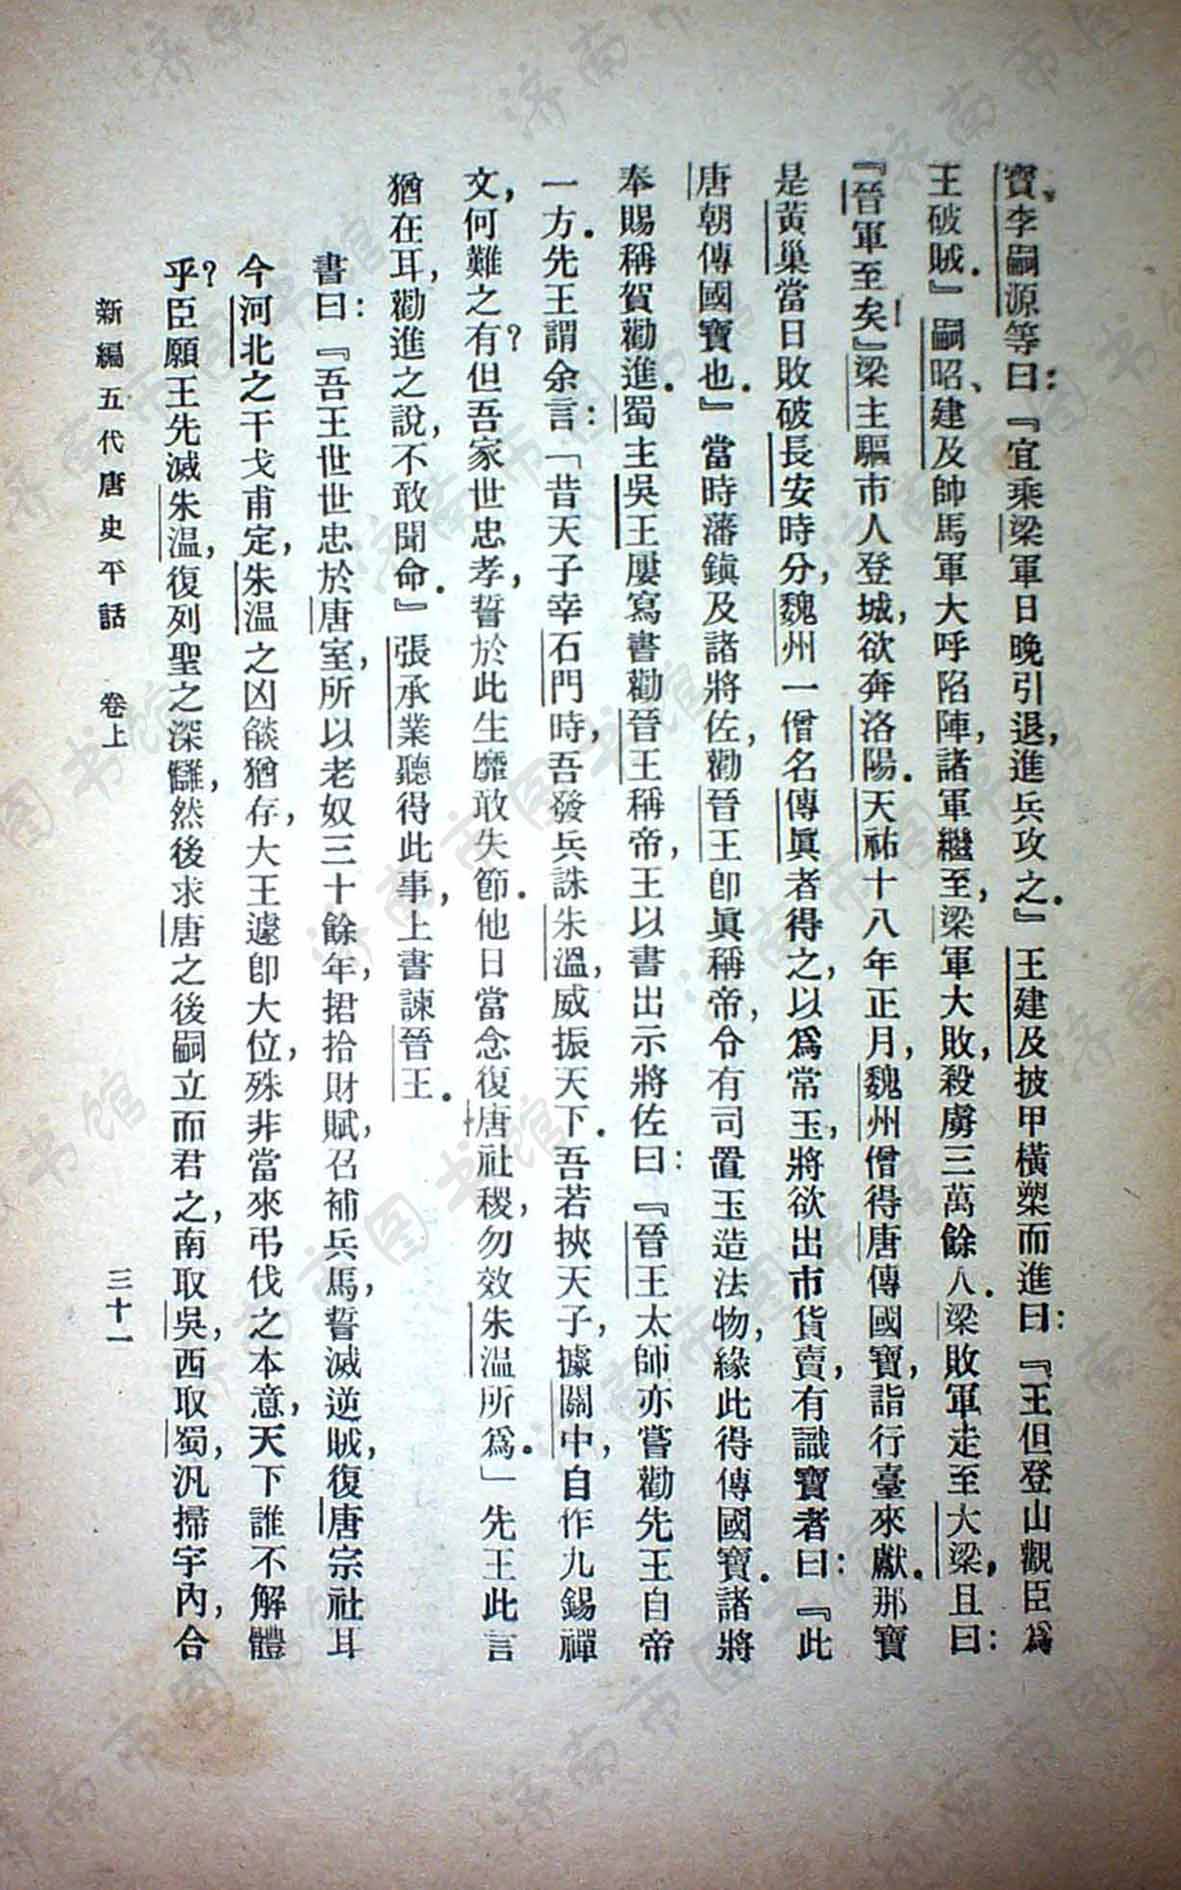 寶、李嗣源等曰：『宜乘梁軍日晚引退，進兵攻之。』王建及披甲橫槊而進曰：『王但登山觀臣爲
王破賊。』嗣昭、建及帥馬軍大呼陷陣，諸軍繼至，梁軍大敗，殺虜三萬餘人。梁敗軍走至大梁，且曰：
『晉軍至矣！』梁主驅市人登城，欲奔洛陽。天祐十八年正月，魏州僧得唐傳國寶，詣行臺來獻。那寶
是黃巢當日敗破長安時分，魏州一僧名傳眞者得之，以爲常玉，將欲出市貨賣，有識寶者曰：『此
唐朝傳國寶也。』當時藩鎮及諸將佐，勸晉王卽眞稱帝，令有司置玉造法物，緣此得傳國寶。諸將
奉賜稱賀勸進。蜀主吳王屢寫書勸晉王稱帝，王以書出示將佐曰：『晉王太師亦嘗勸先王自帝
一方。先王謂余言：「昔天子幸石門時，吾發兵誅朱溫，威振天下。吾若挾天子，據關中，自作九錫禪
文，何難之有？但吾家世忠孝，誓於此生靡敢失節。他日當念復唐社稷，勿效朱溫所爲。」先王此言
猶在耳，勸進之說，不敢聞命。』張承業聽得此事，上書諫晉王。
書曰：『吾王世世忠於唐室，所以老奴三十餘年，捃拾財賦，召補兵馬，誓滅逆賊，復唐宗社耳
今河北之干戈甫定，朱溫之凶燄猶存，大王遽卽大位，殊非當來弔伐之本意，天下誰不解體
乎？臣願王先滅朱溫，復列聖之深讎，然後求唐之後嗣立而君之，南取吳，西取蜀，汎掃宇內，合
新編五代唐史平話　卷上　三十一
济南市图书馆